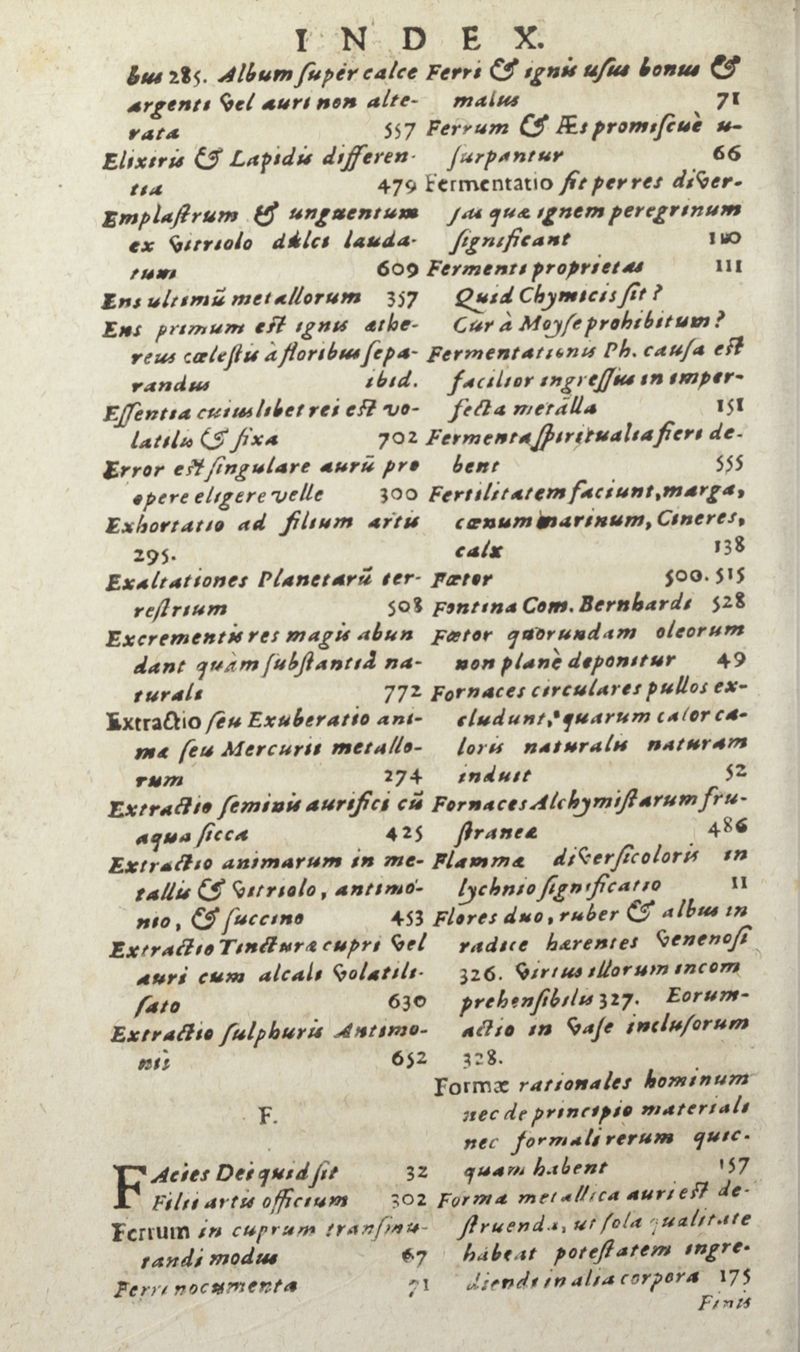 INDEX.
bus 285. Album super calce
argenti vel auri non alte-
rata 557
Elixiris & Lapidis differen-
tia 479
Emplastrum & unguentum
ex vitriolo dulci lauda-
tum 609
Ens ultimũ metallorum 357
Ens primum est ignis æthe-
reus cœlestis à floribus sepa-
randus ibid.
Essentia cuiuslibet rei est vo-
latilis & fixa 702
Error est singulare aurũ pro
opere eligere velle 300
Exhortatio ad filium artis
295.
Exaltationes Planetarũ ter-
restrium 508
Excrementis res magis abun
dant quàm substantiâ na-
turali 772
Extractio seu Exuberatio ani-
mæ seu Mercurii metallo-
rum 274
Extractio seminis aurifici cũ
aqua sicca 425
Extractio animarum in me-
tallis & vitriolo, antimo-
nio, & succino 453
Extractio Tincturæ cupri vel
auri cum alcali volatili-
sato 630
Extractio sulphuris Antimo-
nii 652
F.
FAcies Dei quid sit 32
Filii artis officium 302
Ferrum in cuprum transmu-
tandi modus 67
Ferri nocumenta 71
Ferri & ignis usus bonus &
malus 71
Ferrum & Æs promiscuè u-
surpantur 66
Fermentatio fit per res diver-
sas quæ ignem peregrinum
significant 110
Fermenti proprietas 111
Quid Chymicis sit?
Cur à Moyse prohibitum?
Fermentationis Ph. causa est
facilior ingressus in imper-
fecta metalla 151
Fermenta spiritualia fieri de-
bent 555
Fertilitatem faciunt, marga,
cœnum marinum, Cineres,
calx 138
Fœtor 500. 515
Fontina Com. Bernhardi 528
Fœtor quorundam oleorum
non planè deponitur 49
Fornaces circulares pullos ex-
cludunt, quarum calor ca-
loris naturalis naturam
induit 52
Fornaces Alchymistarum fru-
straneæ 486
Flamma diversicoloris in
lychnio significatio 11
Flores duo, ruber & albus in
radice hærentes venenosi
326. virtus illorum incom
prehensibilis 327. Eorum-
actio in vase inclusorum
328.
Formæ rationales hominum
nec de principio materiali
nec formali rerum quic-
quam habent 157
Forma metallica auri est de-
struenda, ut sola qualitate
habeat potestatem ingre-
diendi in alia corpora 175
Finis